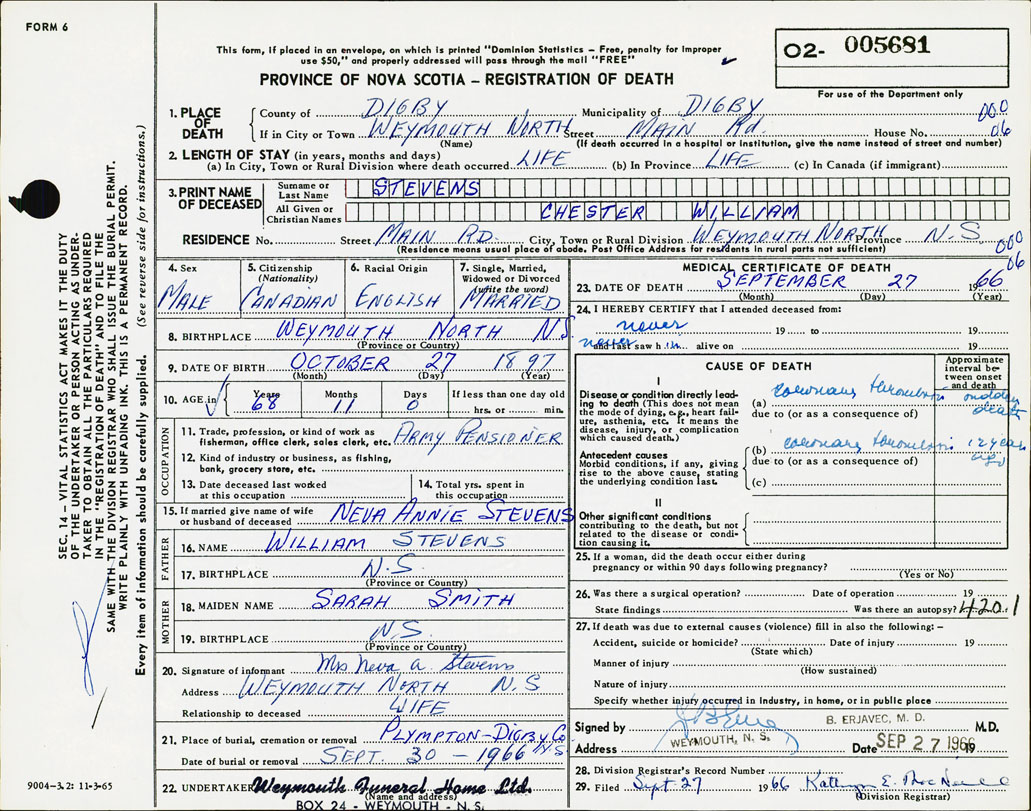 FORM 6
O2- 005681
This form, if placed in an envelope, on which is printed "Dominion Statistics – Free, penalty for improper
use $50," and properly addressed will pass through the mail "FREE"
PROVINCE OF NOVA SCOTIA – REGISTRATION OF DEATH
For use of the Department only
1. PLACE OF DEATH
County of DIGBY Municipality of DIGBY 000
If in City or Town WEYMOUTH NORTH Street MAIN Rd. House No. 06
(Name) (If death occurred in a hospital or institution, give the name instead of street and number)
2. LENGTH OF STAY (in years, months and days)
(a) In City, Town or Rural Division where death occurred LIFE (b) In Province LIFE (c) In Canada (if immigrant)
3. PRINT NAME OF DECEASED
Surname or Last Name STEVENS
All Given or Christian Names CHESTER WILLIAM
RESIDENCE No. Street MAIN RD. City, Town or Rural Division WEYMOUTH NORTH Province N.S 000
(Residence means usual place of abode. Post Office Address for residents in rural parts not sufficient) 06
4. Sex MALE
5. Citizenship (Nationality) CANADIAN
6. Racial Origin ENGLISH
7. Single, Married, Widowed or Divorced (write the word) MARRIED
8. BIRTHPLACE WEYMOUTH NORTH N.S
(Province or Country)
9. DATE OF BIRTH OCTOBER 27 1897
(Month) (Day) (Year)
10. AGE in Years 68 Months 11 Days 0 If less than one day old
hrs. or min.
OCCUPATION
11. Trade, profession, or kind of work as
fisherman, office clerk, sales clerk, etc. ARMY PENSIONER
12. Kind of industry or business, as fishing,
bank, grocery store, etc.
13. Date deceased last worked
at this occupation
14. Total yrs. spent in
this occupation
15. If married give name of wife
or husband of deceased NEVA ANNIE STEVENS
FATHER
16. NAME WILLIAM STEVENS
17. BIRTHPLACE N.S.
(Province or Country)
MOTHER
18. MAIDEN NAME SARAH SMITH
19. BIRTHPLACE N.S.
(Province or Country)
20. Signature of informant Mrs Neva A. Stevens
Address WEYMOUTH NORTH N.S
Relationship to deceased WIFE
21. Place of burial, cremation or removal PLYMPTON-DIGBY Co N.S
Date of burial or removal SEPT. 30 – 1966
22. UNDERTAKER Weymouth Funeral Home Ltd.
(Name and address)
BOX 24 - WEYMOUTH - N. S.
MEDICAL CERTIFICATE OF DEATH
23. DATE OF DEATH SEPTEMBER 27 1966
(Month) (Day) (Year)
24. I HEREBY CERTIFY that I attended deceased from:
never 19 to 19
never and last saw him alive on 19
CAUSE OF DEATH
Approximate interval between onset and death
I
Disease or condition directly leading to death (This does not mean the mode of dying, e.g., heart failure, asthenia, etc. It means the disease, injury, or complication which caused death.)
(a) coronary thrombosis sudden death
due to (or as a consequence of)
Antecedent causes
Morbid conditions, if any, giving rise to the above cause, stating the underlying condition last.
(b) coronary thrombosis 12 years ago
due to (or as a consequence of)
(c)
II
Other significant conditions
contributing to the death, but not related to the disease or condition causing it.
25. If a woman, did the death occur either during
pregnancy or within 90 days following pregnancy?
(Yes or No)
26. Was there a surgical operation? Date of operation 19
State findings Was there an autopsy? 420.1
27. If death was due to external causes (violence) fill in also the following: –
Accident, suicide or homicide? Date of injury 19
(State which)
Manner of injury
(How sustained)
Nature of injury
Specify whether injury occurred in industry, in home, or in public place
Signed by B. ERJAVEC, M. D. M.D.
Address WEYMOUTH, N. S. Date SEP 27 1966 19
28. Division Registrar's Record Number
29. Filed Sept 27 1966
(Division Registrar)
SEC. 14 – VITAL STATISTICS ACT MAKES IT THE DUTY
OF THE UNDERTAKER OR PERSON ACTING AS UNDER-
TAKER TO OBTAIN ALL THE PARTICULARS REQUIRED
IN THE "REGISTRATION OF DEATH" AND TO FILE THE
SAME WITH THE DIVISION REGISTRAR WHO SHALL ISSUE THE BURIAL PERMIT.
WRITE PLAINLY WITH UNFADING INK. THIS IS A PERMANENT RECORD.
Every item of information should be carefully supplied. (See reverse side for instructions.)
9004–3.2: 11-3-65